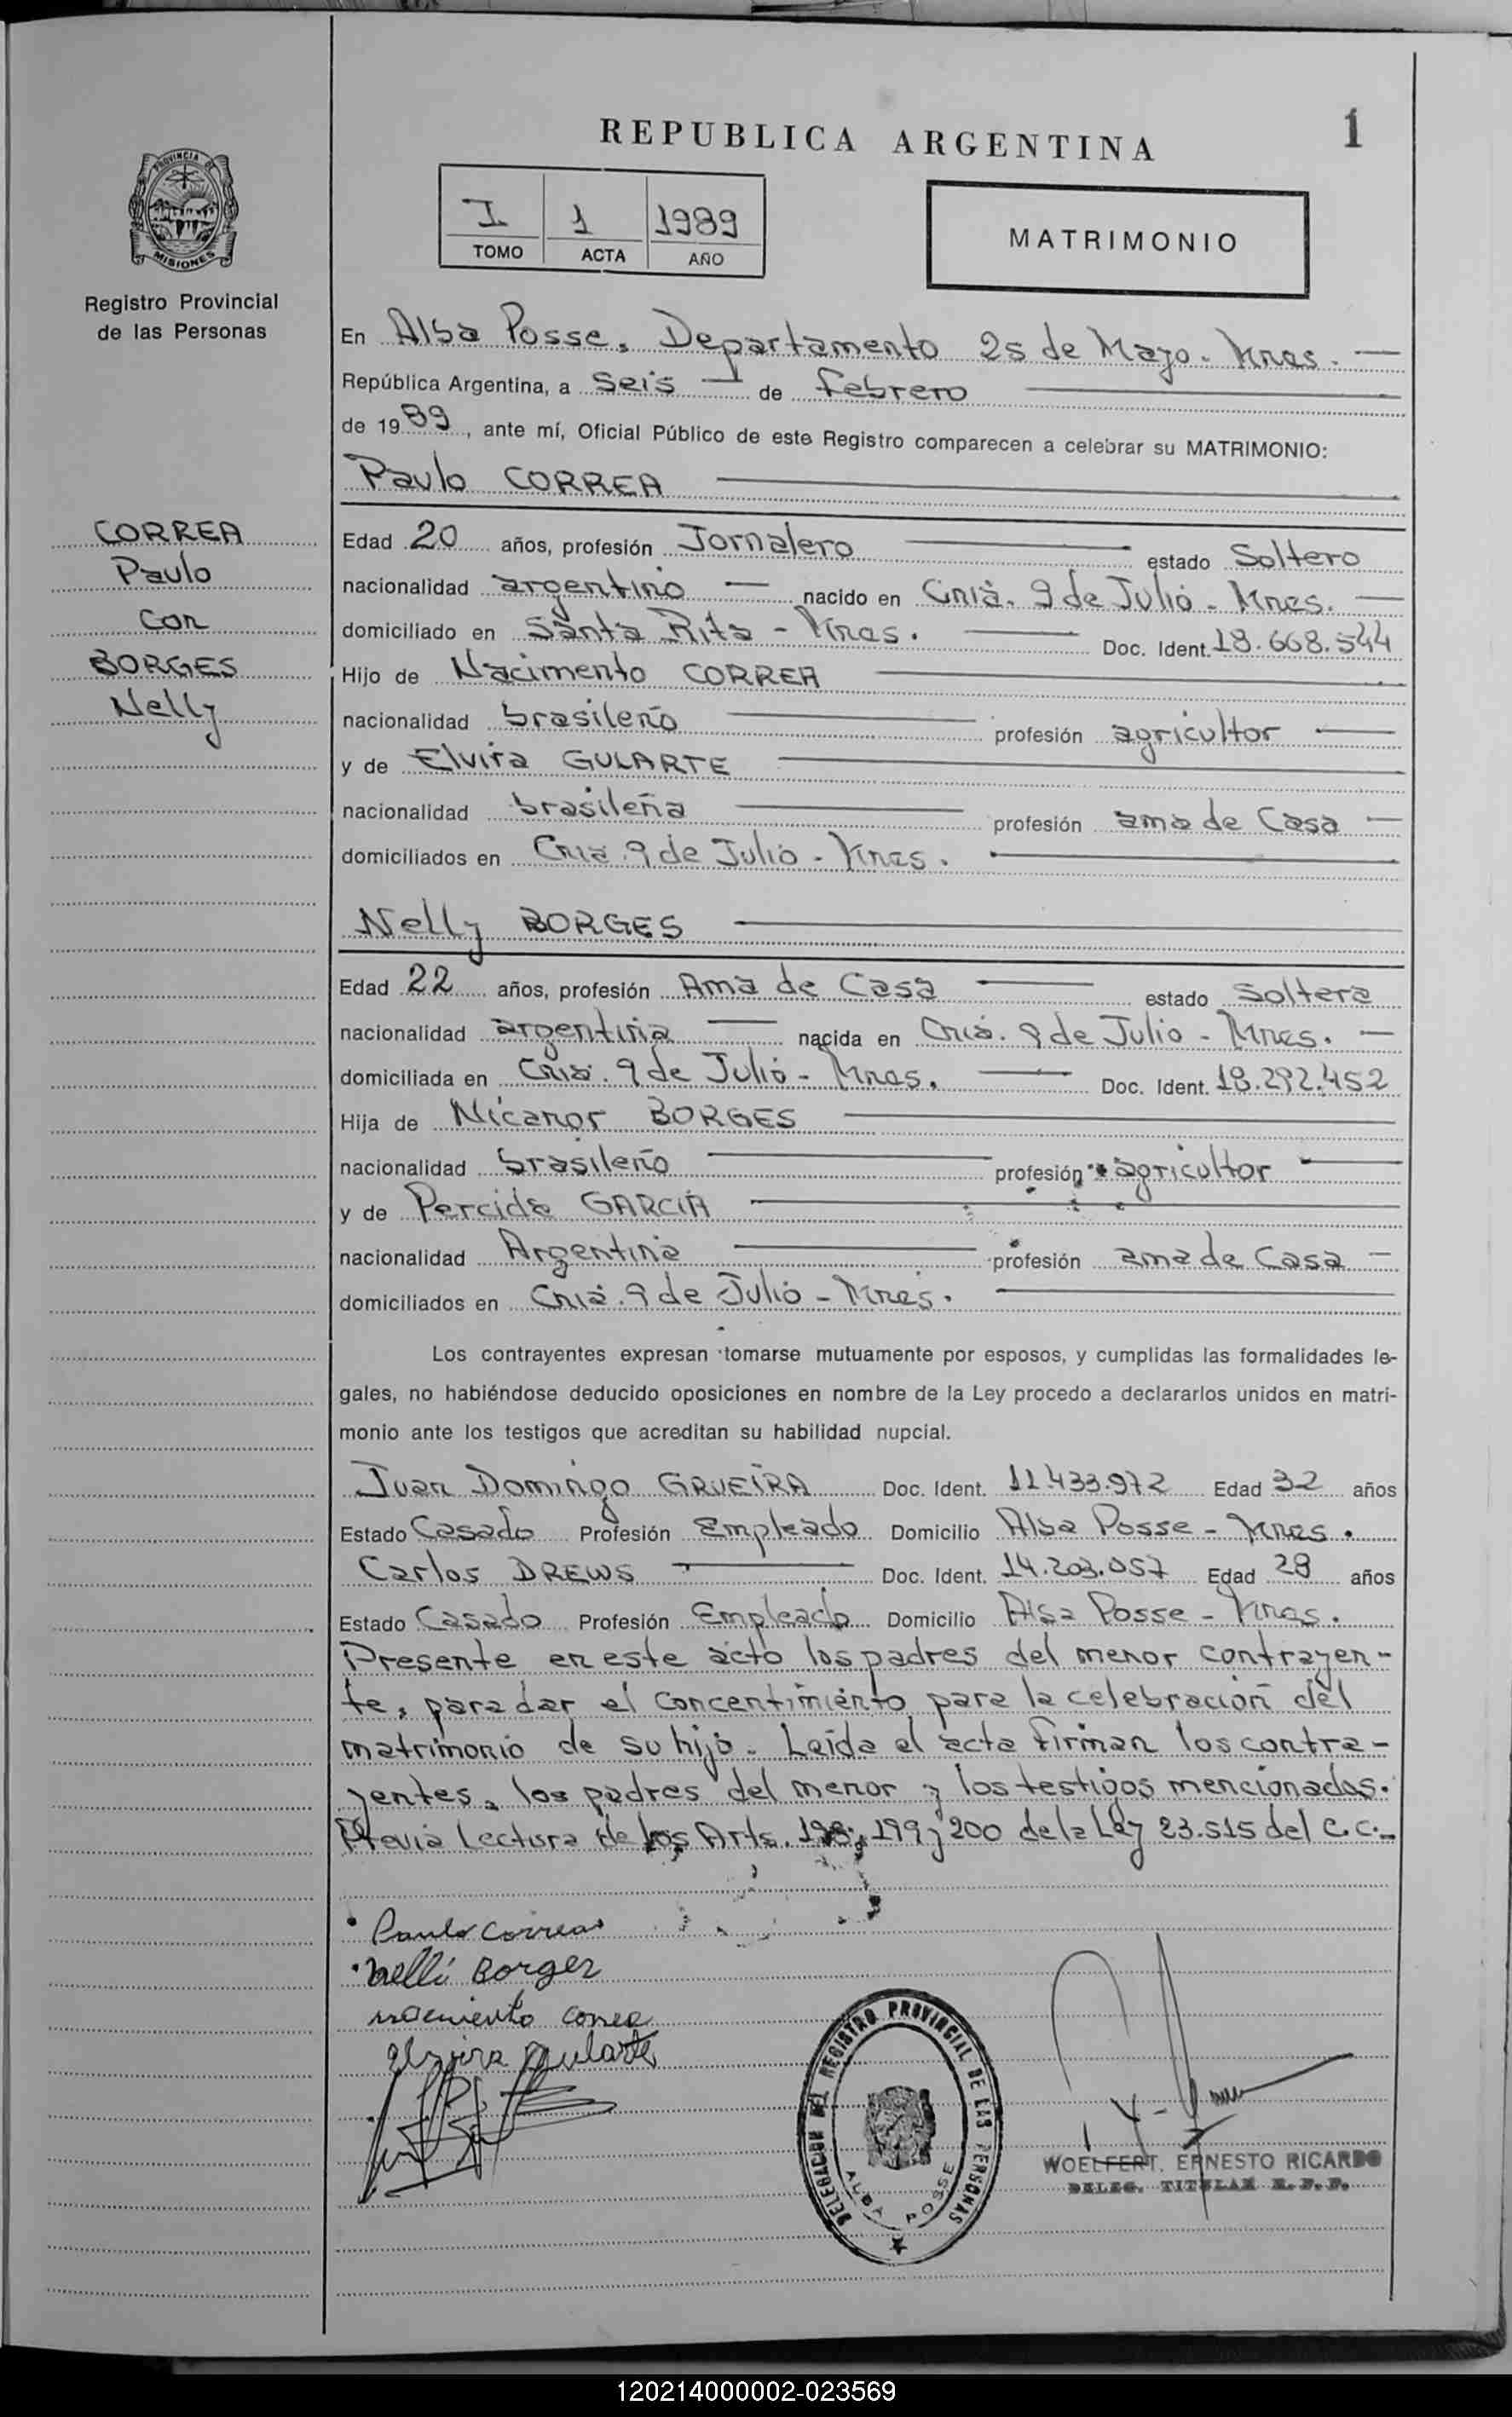 REPUBLICA ARGENTINA
1
PROVINCIA DE
MISIONES
Registro Provincial
de las Personas
I 1 1989
TOMO ACTA AÑO
MATRIMONIO
En Alba Posse, Departamento 25 de Mayo. Mnes.
República Argentina, a Seis de Febrero
de 1989, ante mí, Oficial Público de este Registro comparecen a celebrar su MATRIMONIO:
Paulo CORREA
CORREA
Paulo
Con
BORGES
Nelly
Edad 20 años, profesión Jornalero estado Soltero
nacionalidad argentino nacido en Cnia. 9 de Julio - Mnes.
domiciliado en Santa Rita - Mnes. Doc. Ident. 18.668.544
Hijo de Nacimento CORREA
nacionalidad brasileño profesión agricultor
y de Elvira GULARTE
nacionalidad brasileña profesión ama de Casa
domiciliados en Cnia. 9 de Julio - Mnes.
Nelly BORGES
Edad 22 años, profesión Ama de Casa estado Soltera
nacionalidad argentina nacida en Cnia. 9 de Julio - Mnes.
domiciliada en Cnia. 9 de Julio - Mnes. Doc. Ident. 18.292.452
Hija de Nicanor BORGES
nacionalidad brasileño profesión agricultor
y de Percida GARCIA
nacionalidad Argentina profesión ama de Casa
domiciliados en Cnia. 9 de Julio - Mnes.
Los contrayentes expresan tomarse mutuamente por esposos, y cumplidas las formalidades le-
gales, no habiéndose deducido oposiciones en nombre de la Ley procedo a declararlos unidos en matri-
monio ante los testigos que acreditan su habilidad nupcial.
Juan Domingo GRUEIRA Doc. Ident. 11.433.972 Edad 32 años
Estado Casado Profesión Empleado Domicilio Alba Posse - Mnes.
Carlos DREWS Doc. Ident. 14.203.057 Edad 28 años
Estado Casado Profesión Empleado Domicilio Alba Posse - Mnes.
Presente en este acto los padres del menor contrayen-
te, para dar el concentimiento para la celebración del
matrimonio de su hijo. Leida el acta firman los contra-
yentes, los padres del menor y los testigos mencionados.
Previa Lectura de los Arts. 198, 199 y 200 de la Ley 23.515 del C.C.-
Paulo Correa
Nelli Borges
nacimiento correa
elvira gularte
DELEGACION DEL REGISTRO PROVINCIAL DE LAS PERSONAS
ALBA POSSE
WOELFERT, ERNESTO RICARDO
DELEG. TITULAR R. P. P.
120214000002-023569